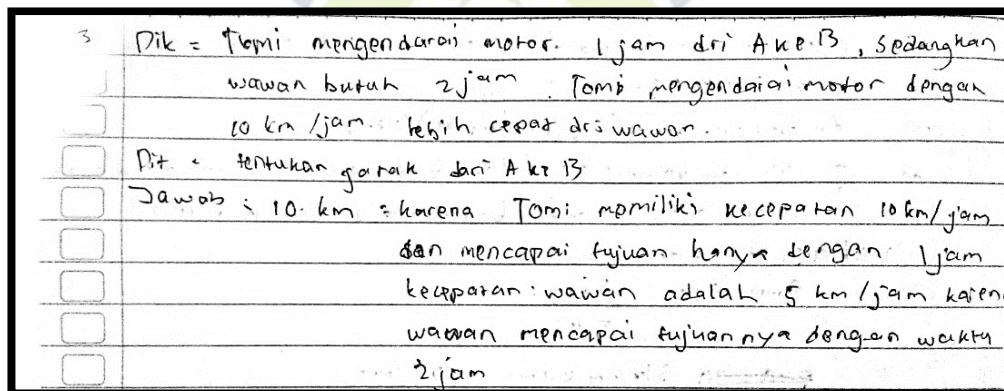 3 Dik = Tomi mengendarai motor. 1 jam dri A ke B, sedangkan
wawan butuh 2 jam. Tomi mengendarai motor dengan
10 km /jam. lebih cepat dri wawan.
Dit : tentukan garak dari A ke B
Jawab : 10. km = karena Tomi memiliki kecepatan 10 km/jam
dan mencapai tujuan hanya dengan 1 jam
kecepatan : wawan adalah 5 km /jam karen
wawan mencapai tujuannya dengan waktu
2 jam